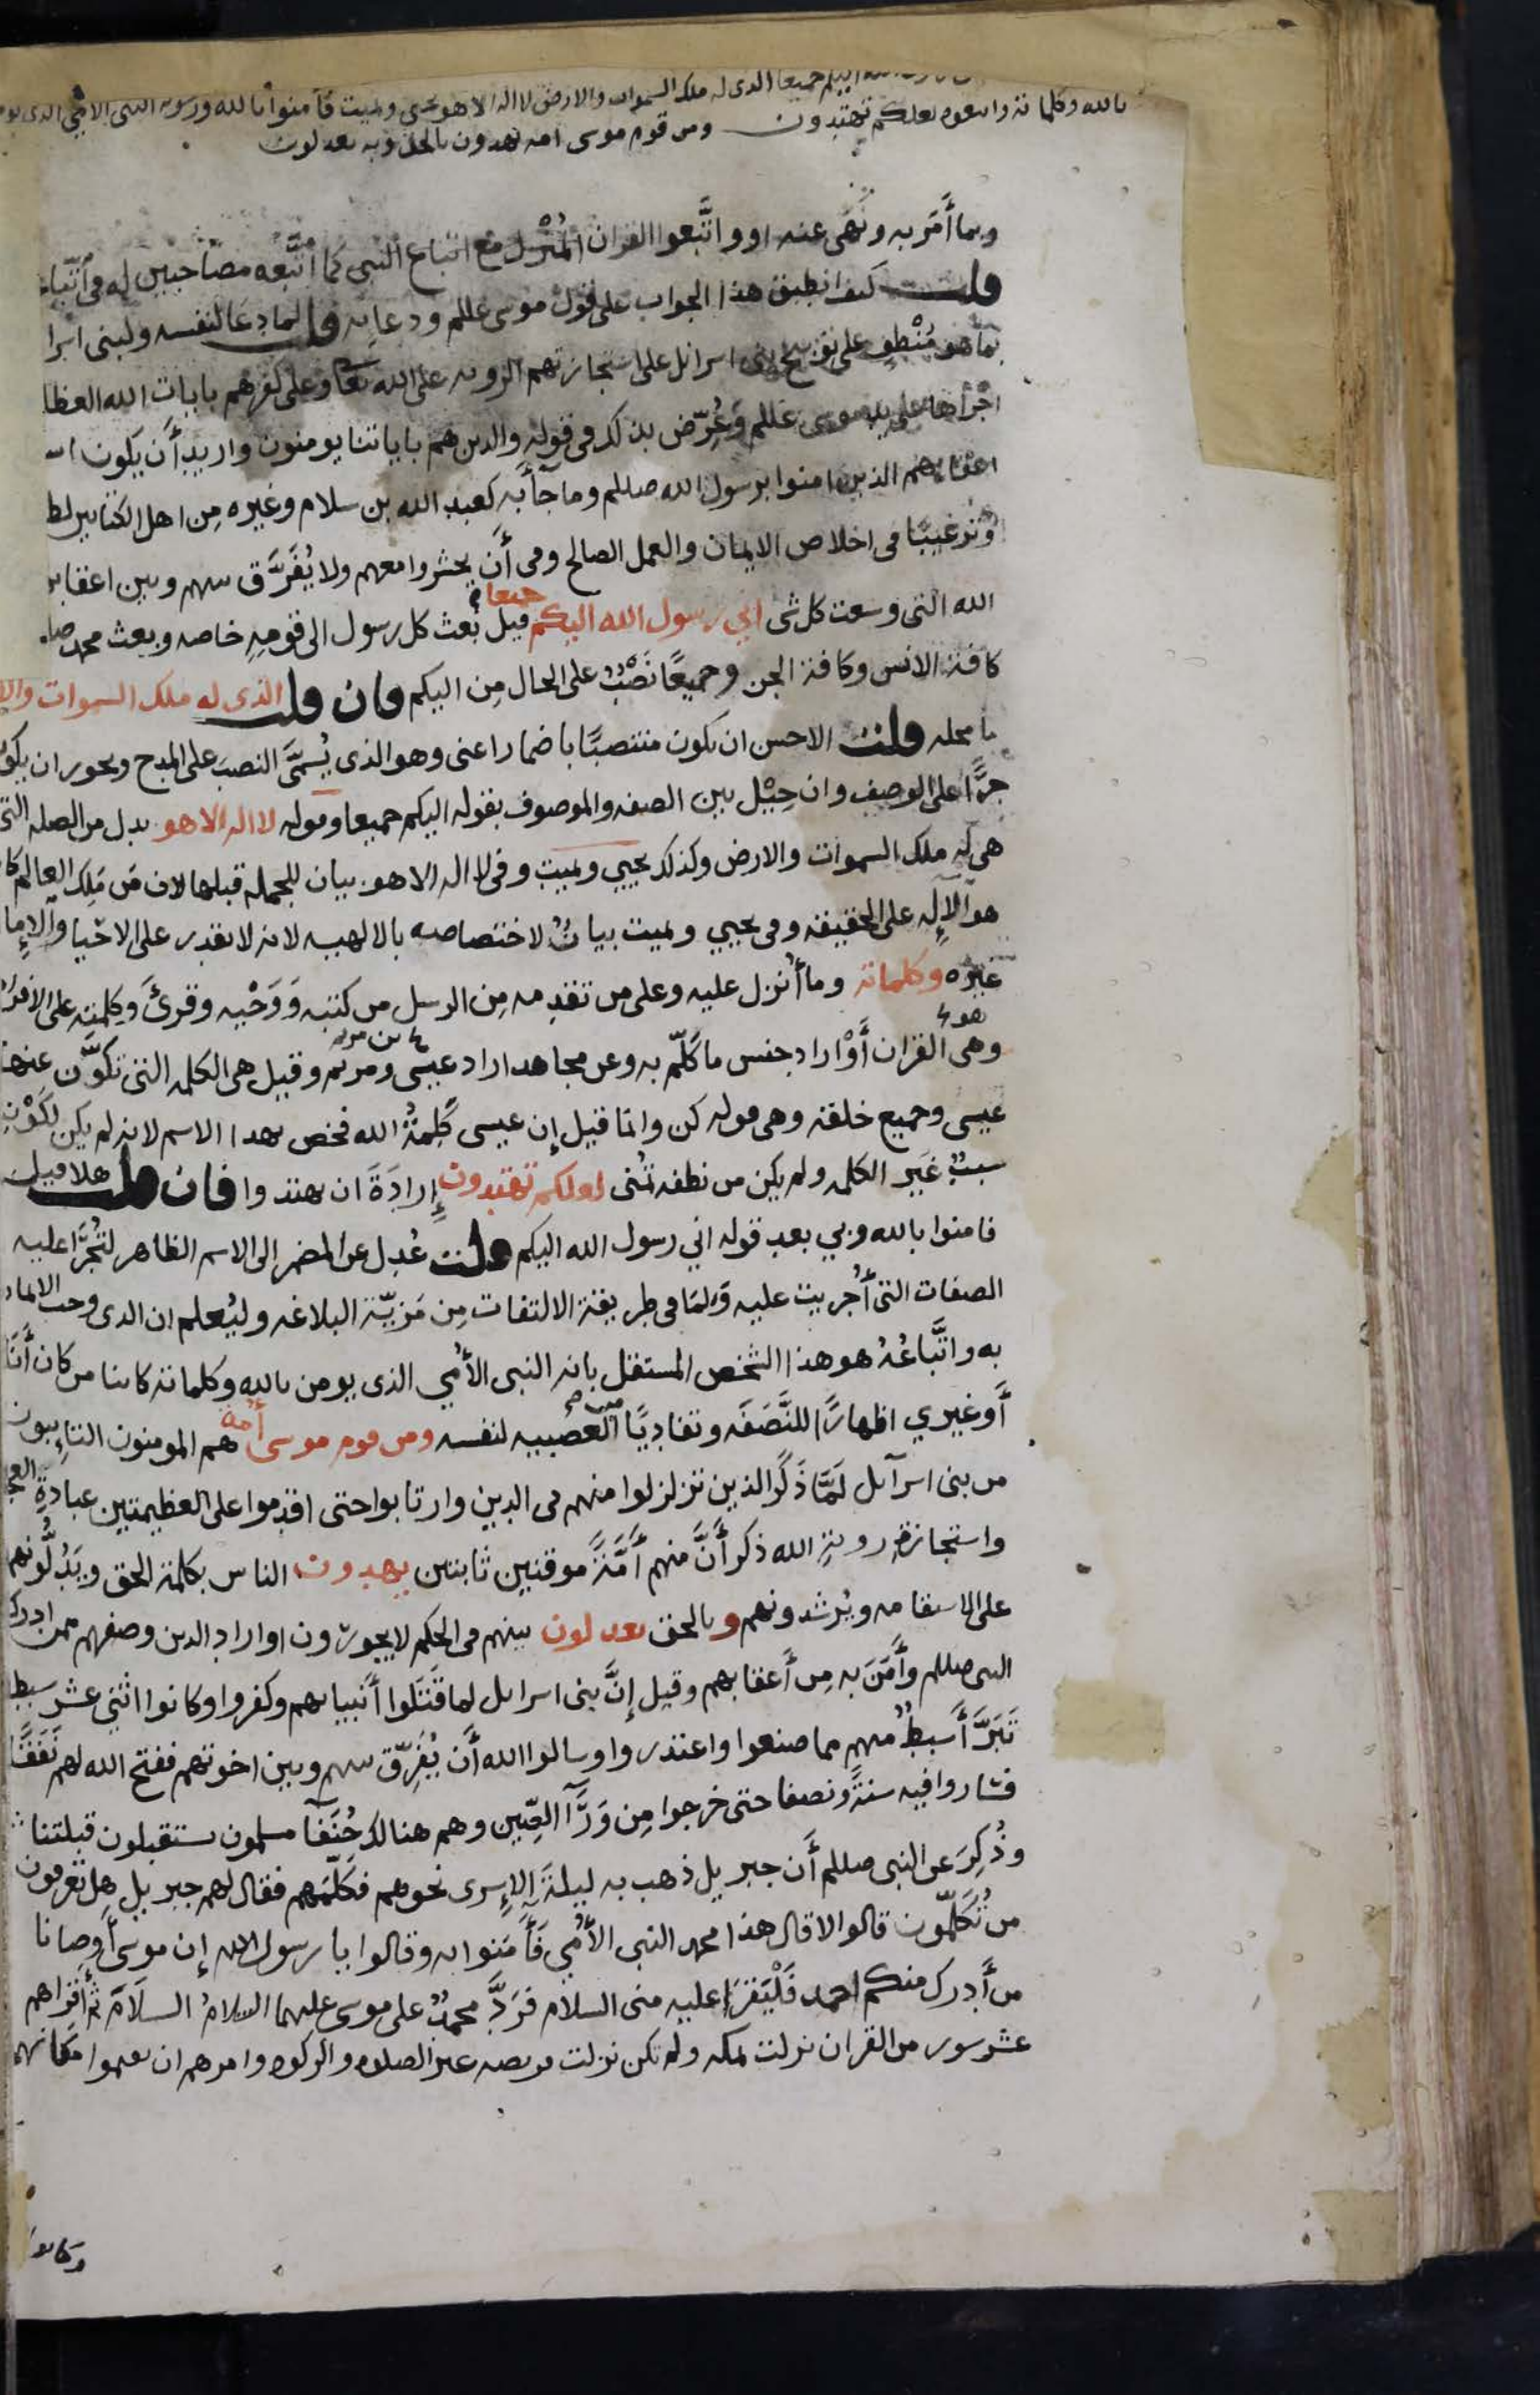 اليكم جميعا الذى له ملك السموات والارض لا اله الا هو يحى ويميت فآمنوا بالله ورسوله النبى الامي الذى يو
بالله وكلماته واتبعوه لعلكم تهتدون ومن قوم موسى امه يهدون بالحق وبه يعدلون
وبما أَمَر به ونَهَى عنه او واتَّبعوا القران المُنْزل مع اتباع النبي كما اتَّبعه مصاحبين له فى اتّباعه
قلت كيف انطبق هذا الجواب على قول موسى عللم ودعايه قلت لما دعا لنفسه ولبنى اسرا
بما هو مُنْطوٍ على توبيخ بنى اسرائل على استجازتهم الرويه على الله تعا وعلى كفرهم بايات الله العظا
اجراها على يد موسى عللم وعُرّض بذلك فى قوله والذين هم باياتنا يومنون واريد أن يكون
اعقابهم الذين امنوا برسول الله صللم وما جآ به كعبد الله بن سلام وغيره مِن اهل الكتابين لط
وترغيبًا فى اخلاص الايمان والعمل الصالح وفى أن يحشروا معهم ولا يُفَرَّق بينهم وبين اعقابهم
الله التى وسعت كل شى اني رسول الله اليكم جميعا قيل بُعث كل رسول الى قومِهِ خاصه وبعث محمد صل
كافة الانس وكافة الجن وجميعًا نَصْبٌ على الحال مِن اليكم فان قلت الذى له ملك السموات والا
ما محله قلت الاحسن ان يكون منتصبًا باضمار اعنى وهو الذى يُسمَّى النصبَ على المدح ويجوز ان يكو
جرًّا على الوصف وان حِيْل بين الصفه والموصوف بقوله اليكم جميعا وقوله لا اله الا هو بدل من الصله التى
هى له ملك السموات والارض وكذلك يحيي ويميت وفى لا اله الا هو بيان للجمله قبلها لان مَن مَلك العالم كا
هو الإله على الحقيقه وفى يحيي ويميت بيانٌ لاختصاصه بالالهيه لانه لا يقدر على الاحيا والاما
غيره وكلماته وما أُنزل عليه وعلى من تقدمه مِن الرسل من كتبه وَوَحْيه وقرئ وكلمته على الافراد
وهى القران أَوْ اراد جنس ما كُلّم به وعن مجاهد اراد عيسى بن مريم وقيل هى الكلمه التى تكوّن عنها
عيسى وجميع خلقه وهى قوله كن وانما قيل إن عيسى كَلِمةُ الله فخص بهذا الاسم لانه لم يكن لكَوْنه
سببٌ غَير الكلمه ولم يكن من نطفه تُمنى لعلكم تهتدون إرادَةَ ان يهتدوا فان قلت هلا قيل
فامنوا بالله وبي بعد قوله اني رسول الله اليكم قلت عُدِل عن المضمر الى الاسم الظاهر لتُجرَا عليه
الصفات التى أُجريت عليه ولما فى طريقة الالتفات مِن مَزيّة البلاغه وليُعلم ان الذى وجب الايمان
به واتَّباعُهُ هو هذا الشخص المستقل بانه النبى الأمي الذى يومن بالله وكلماته كاينا من كان أنَا
أَو غيري اظهارًا للنَّصَفَه وتفاديًا من العصبيه لنفسه ومن قوم موسى أمة هم المومنون التايبون
من بنى اسرآئل لَمَّا ذكَر الذين تزلزلوا منهم فى الدين وارتابوا حتى اقدموا على العظيمتين عبادة العجل
واستجازة روية الله ذكر أَنَّ منهم أُمَّةً موقنين ثابتين يهدون الناس بكلمة الحق ويَدُلُّونهم
على الاستقامه ويُرشدونهم وبالحق يعدلون بينهم فى الحكم لا يجورون او اراد الذين وصفهم ممن ادرك
النبى صللم وآمَنَ به مِن أَعقابهم وقيل إنَّ بنى اسرائل لما قَتَلوا أَنبياهم وكفروا وكانوا اثنى عشر سبطا
تَبَرَّأ سبطٌ منهم مما صنعوا واعتذروا وسالوا الله أن يُفَرِّق بينهم وبين اخوتهم ففتح الله لهم نَفَقًا
فساروا فيه سنةً ونصفا حتى خرجوا مِن وَرَآ الصِّين وهم هنالك حُنَفآ مسلمون يستقبلون قبلتنا
وذُكِرَ عن النبى صللم أَن جبريل ذهب به ليلةَ الإسرى نحوهم فكلّمهم فقال لهم جبريل هل تعرفون
من تُكلّمون قالوا لا قال هذا محمد النبى الأُمي فآمَنوا به وقالوا يا رسول الله إن موسى أَوصانا
من أَدرك منكم احمد فَلْيَقرَا عليه منى السلام فَردَّ محمدٌ على موسى عليهما السلامُ السلامَ ثم أقراهم
عشر سور من القران نزلت بمكه ولم تكن نزلت فريضه غير الصلوه والزكوه وامرهم ان يقيموا مكانهم
وكانوا